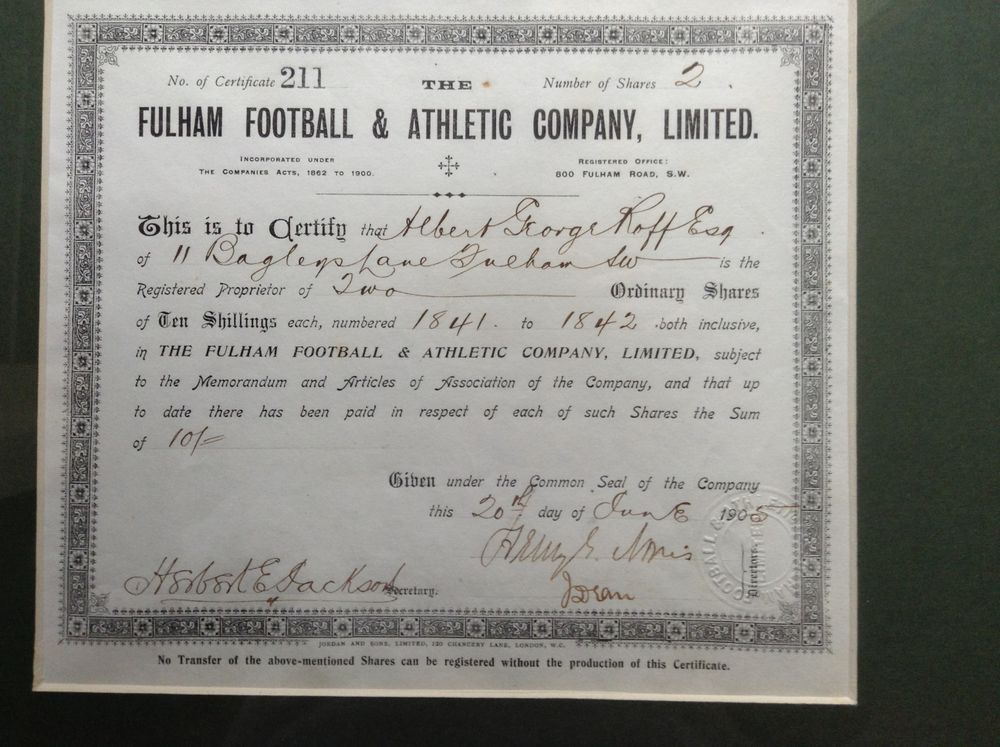 No. of Certificate 211 THE Number of Shares 2
FULHAM FOOTBALL & ATHLETIC COMPANY, LIMITED.
INCORPORATED UNDER
THE COMPANIES ACTS, 1862 TO 1900.
REGISTERED OFFICE:
800 FULHAM ROAD, S.W.
This is to Certify that Albert George Roff Esq
of 11 Bagleys Lane Fulham SW is the
Registered Proprietor of Two Ordinary Shares
of Ten Shillings each, numbered 1841. to 1842 both inclusive,
in THE FULHAM FOOTBALL & ATHLETIC COMPANY, LIMITED, subject
to the Memorandum and Articles of Association of the Company, and that up
to date there has been paid in respect of each of such Shares the Sum
of 10/=
Given under the Common Seal of the Company
this 20th day of June 1905
Henry G. Norris
Directors.
Herbert E Jackson Secretary.
J Dean
JORDAN AND SONS, LIMITED, 120 CHANCERY LANE, LONDON, W.C.
No Transfer of the above-mentioned Shares can be registered without the production of this Certificate.